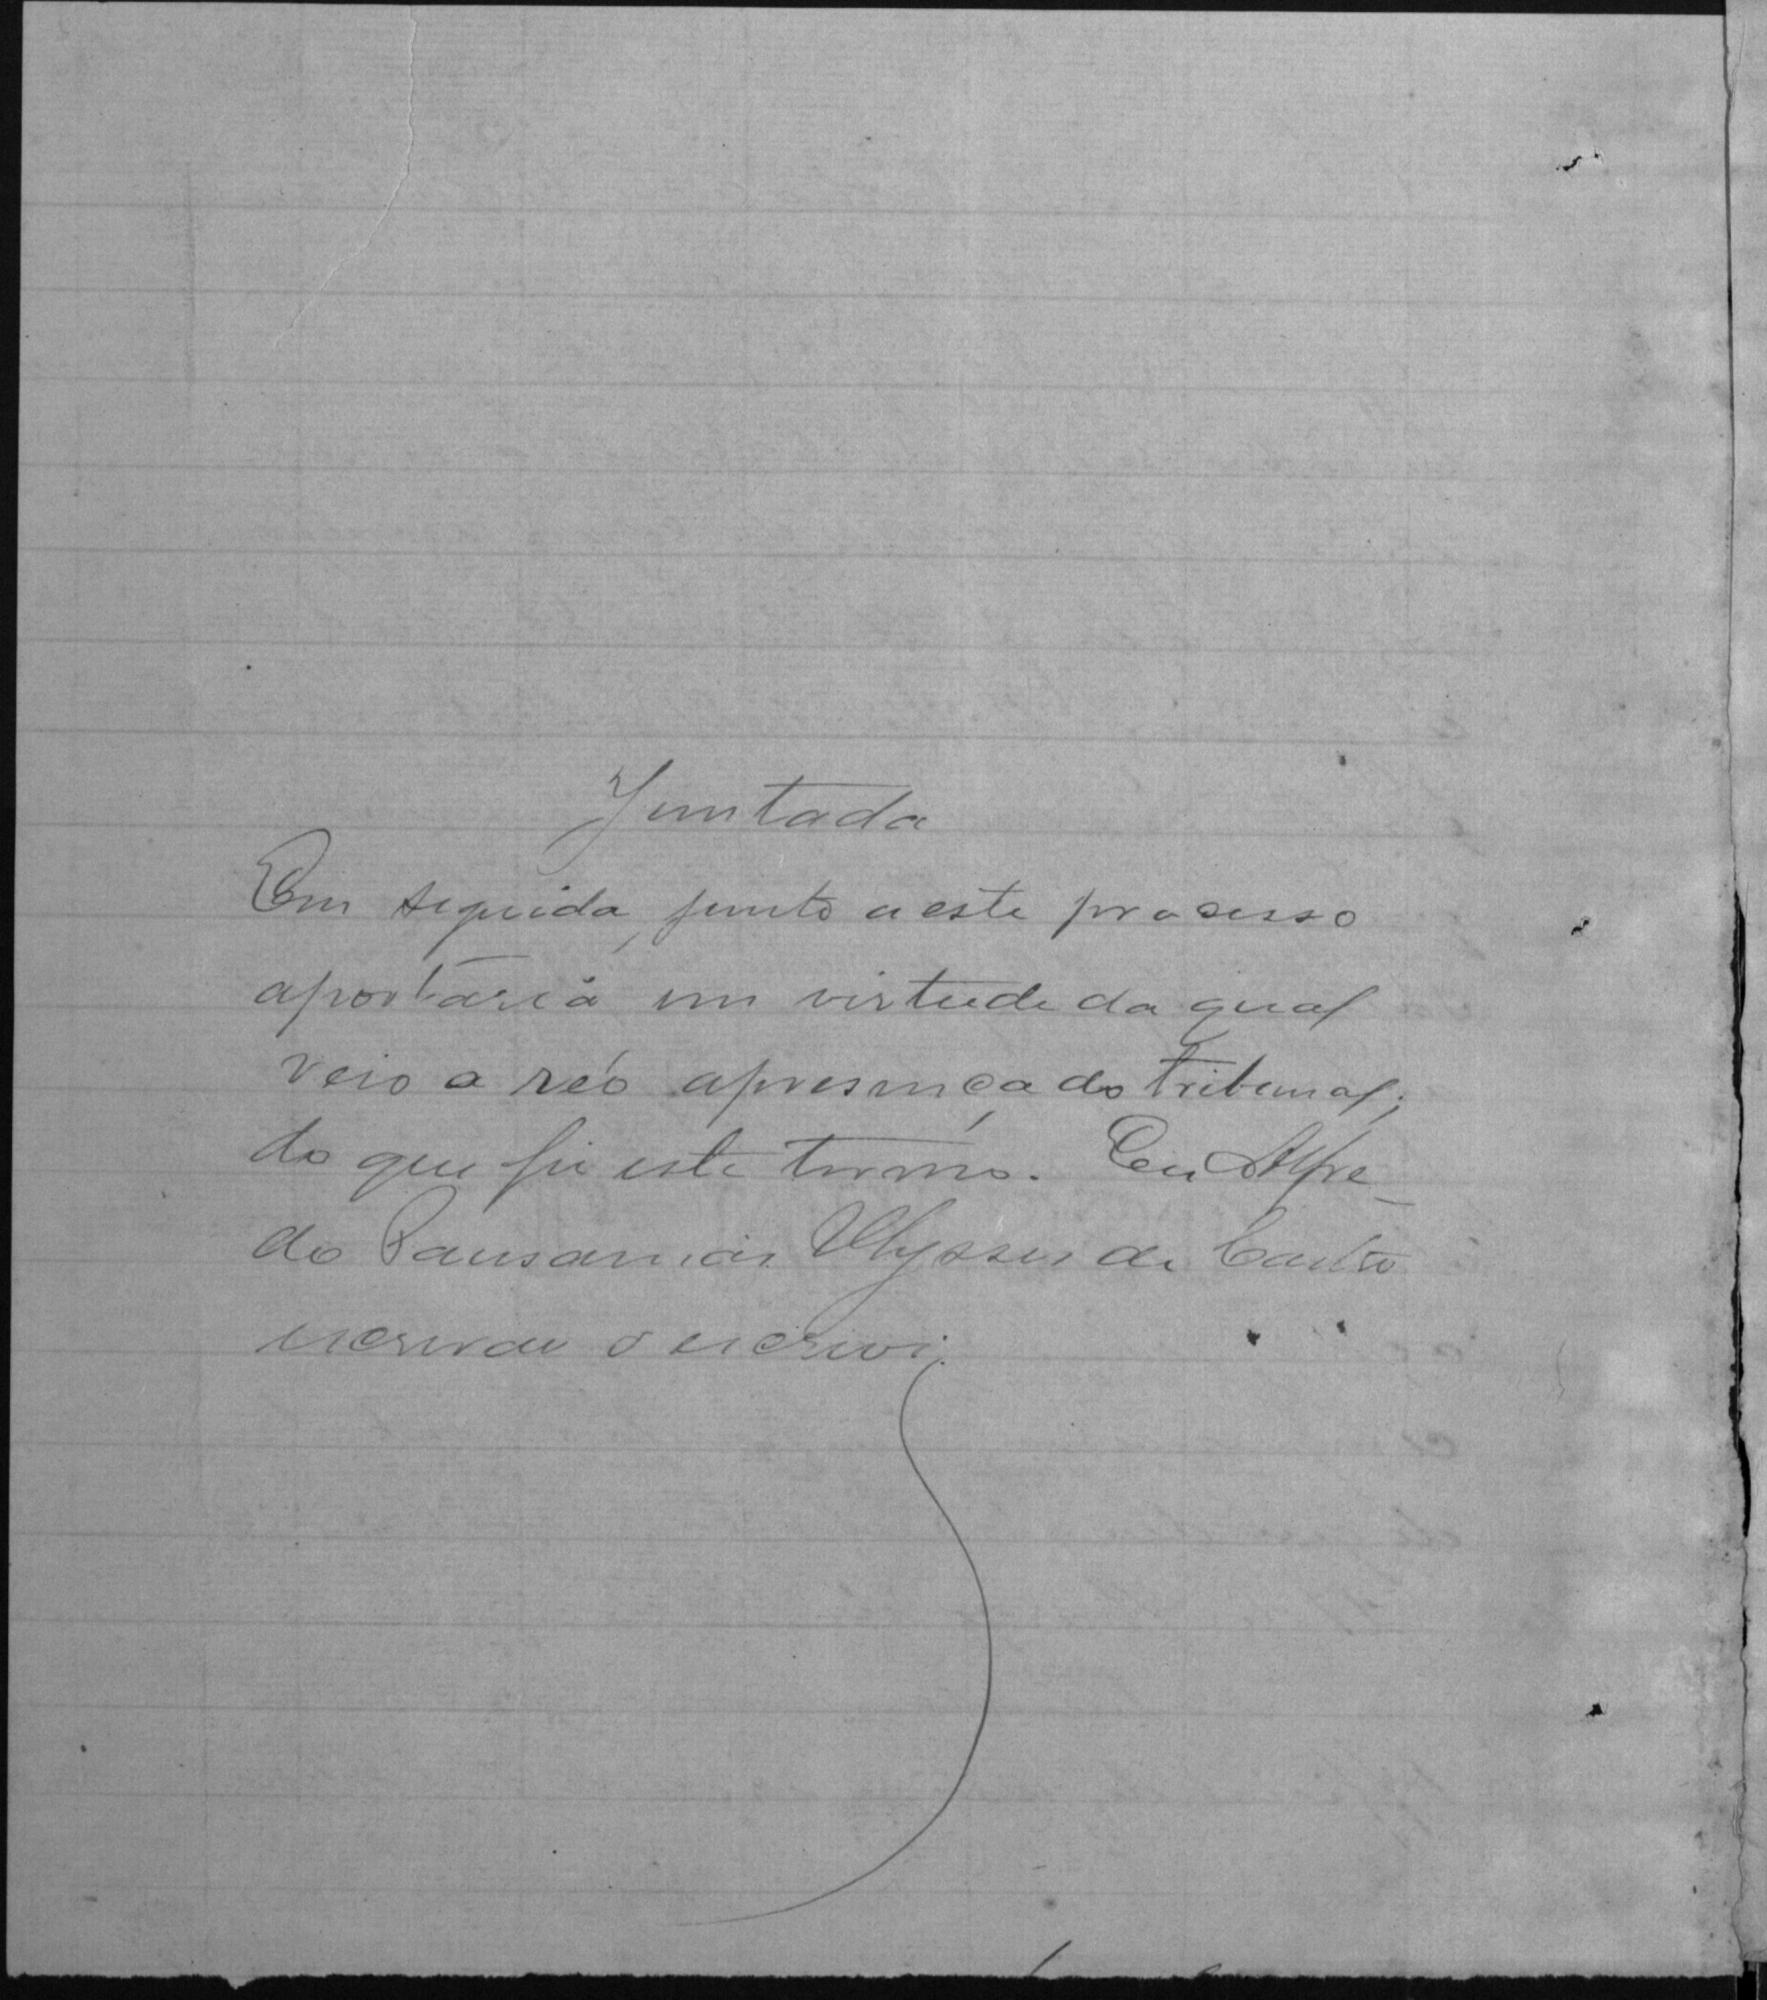 Juntada
Em seguida, junto a este processo
aportaria em virtude da qual
veio o réo apresença do tribunal;
do que fiz este termo. Eu Alfre-
do Pausanias Ulysses de Castro
escrivão o escrevi.